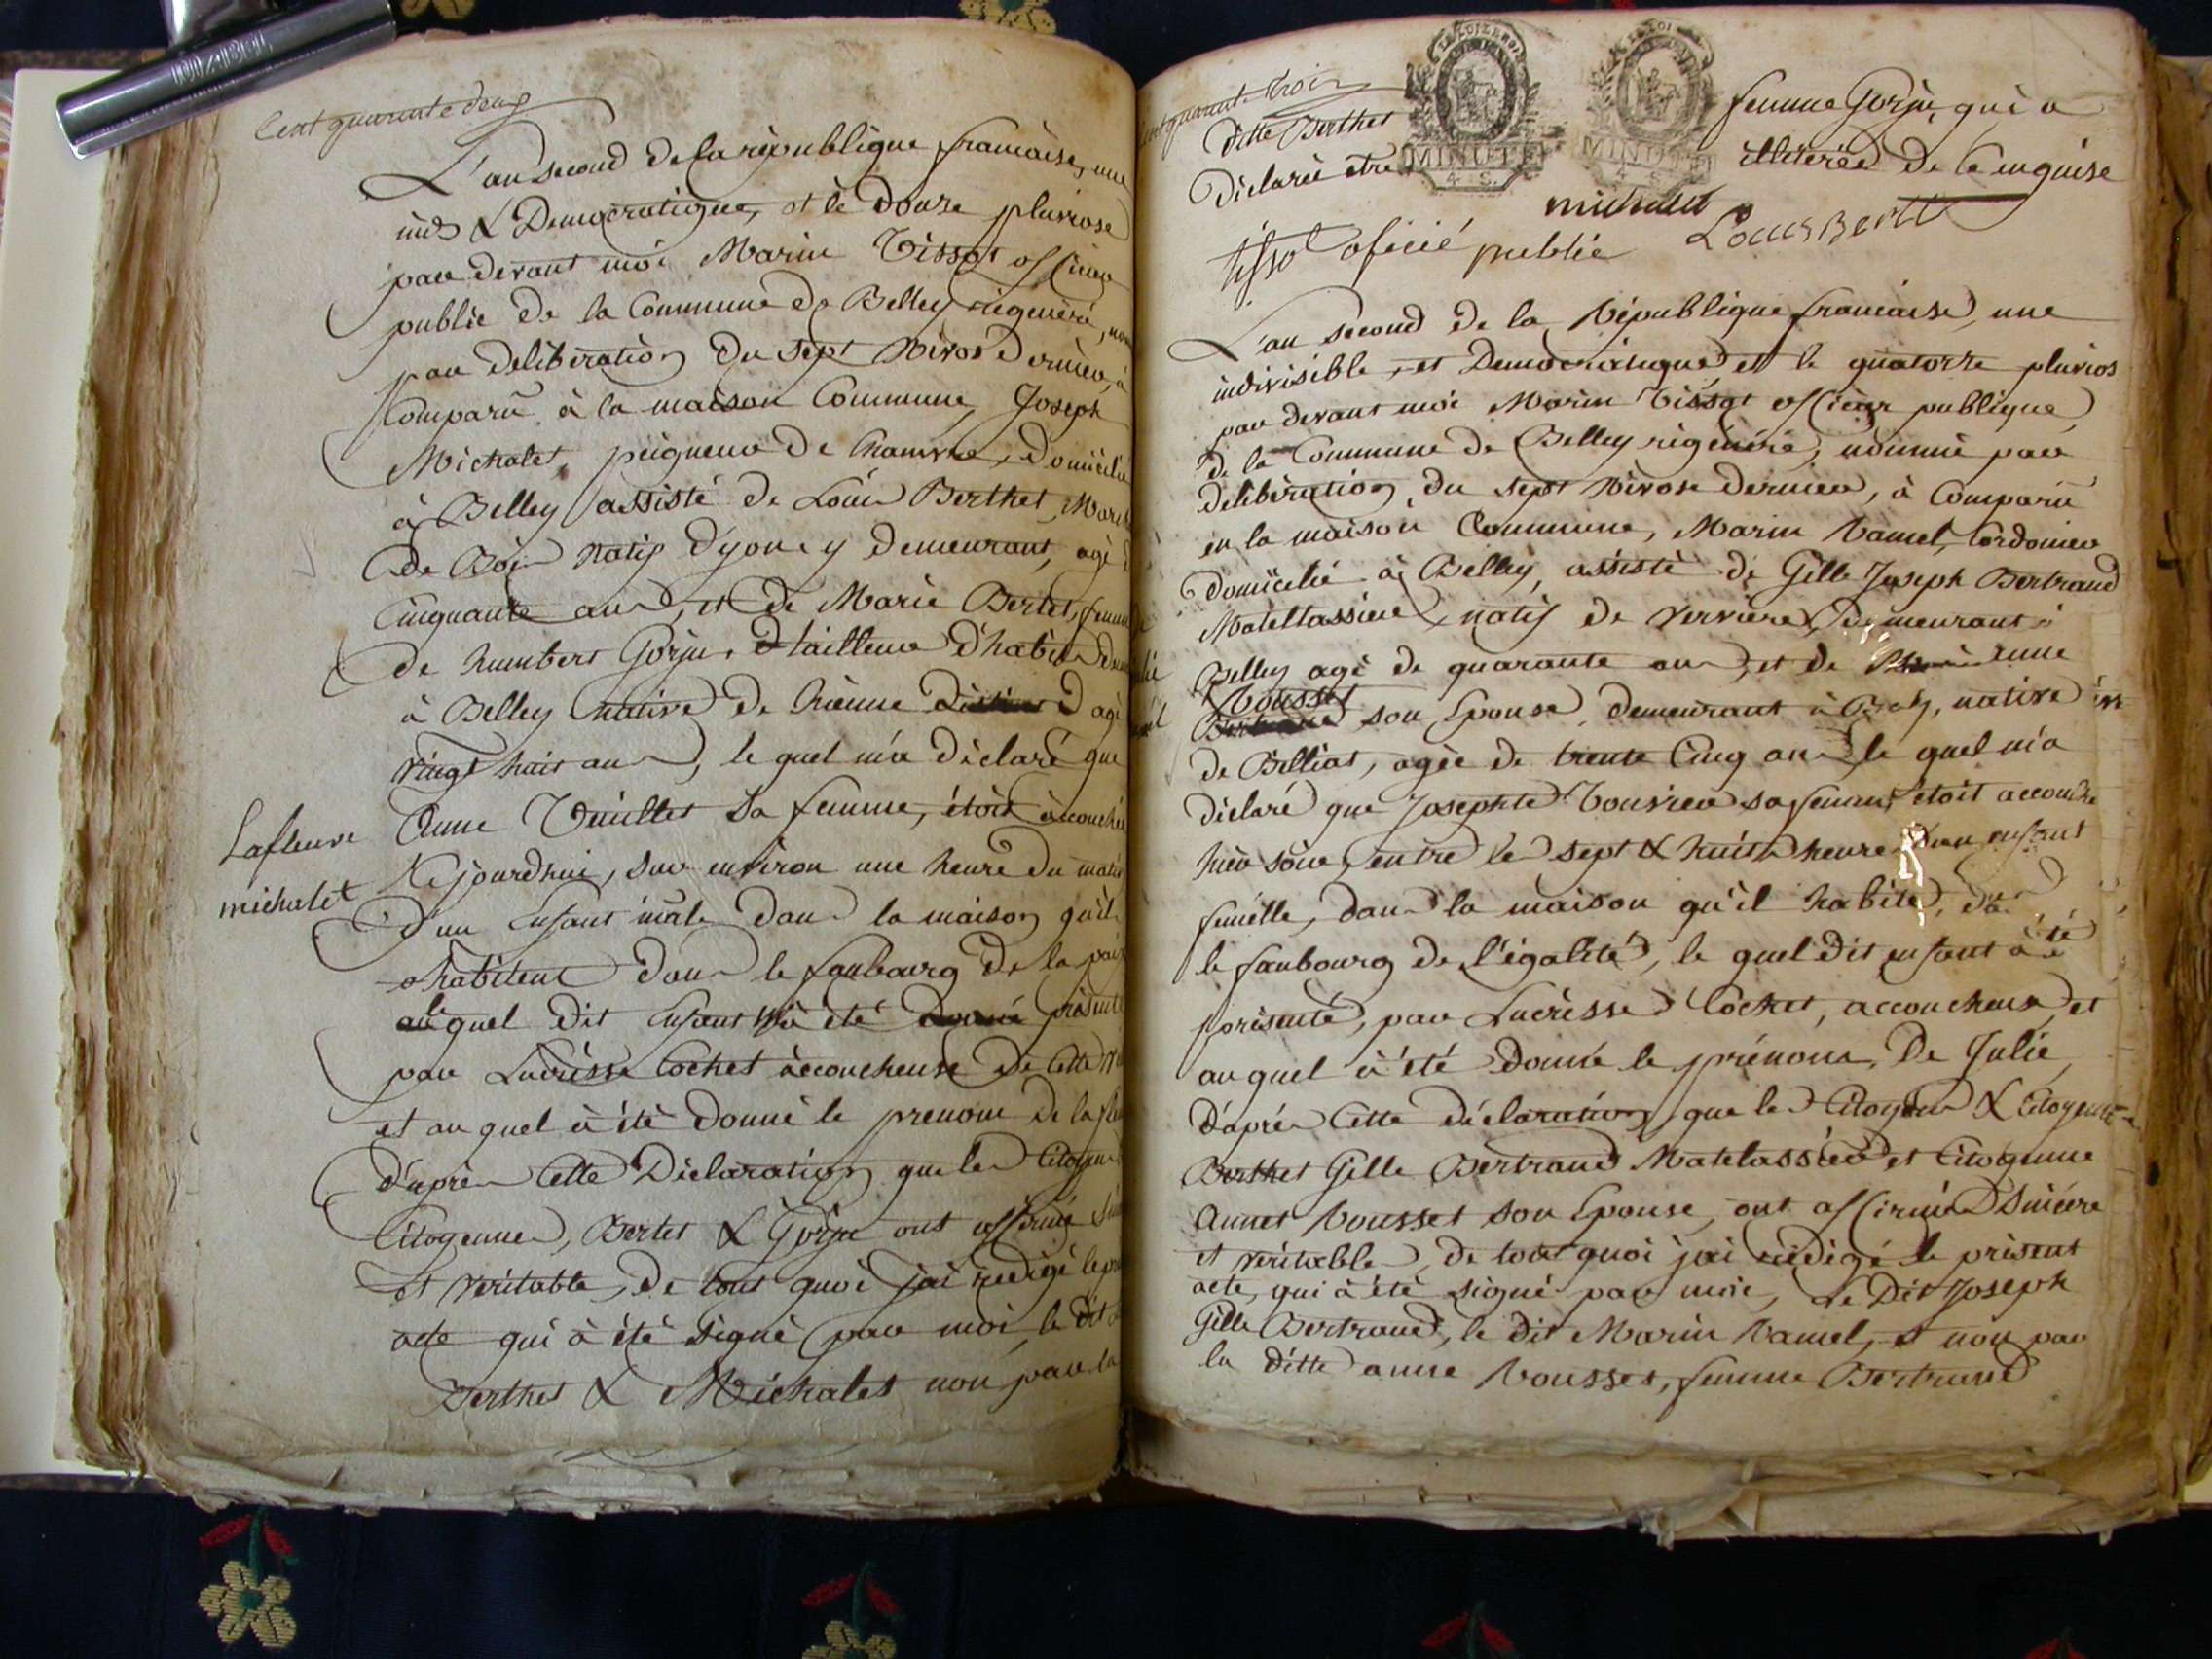 DURABLE
Cent quarante deux
L'an second de la république francaise, une
indˢ & Democratique, et le douze pluviose
par devant moi Marin Tissot officier
public de la Commune de Belley régénéré,
par deliberation du sept Nivose dernier, à
Comparu à la maison Commune, Joseph
Michalet peigneur de Chanvre, domicilié
à Belley assisté de Louis Berthet March
de Bois natif d'yon y demeurant, agé
Cinquante ans, et de Marie Bertet, femme
de humbert Gorju, tailleur d'habits
à Belley native de agé
vingt huit ans, le quel m'a déclaré que
Lafleure
michalet
Anne Veuillet sa femme, étoit accouchée
Ce jourdhui, sur environ une heure du matin
d'un Enfant mâle dans la maison qu'ils
habitent dans le faubourg de la paix
quel dit Enfant à été présenté
par Lucresse Cochet accoucheuse de Cette
et au quel à été donné le prenom de la fleu
d'après Cette Déclaration que les Citoyens
Citoyennes, Bertet & Gorju ont affirmé
et véritable, de tout quoi j'ai redigé le
acte qui à été signé par moi, le dit
Berthet & Michalet non par la
Cent quarante trois
ditte Berthet femme Gorju, qui a
Déclaré etre illitérée de Ce enquise
MINUTE
4 S.
MINUTE
4 S.
michalet
tisso oficié publie Louis Bertt
L'an second de la République francaise, une
indivisible, et Democratique et le quatorze pluvios
par devant moi Marin Tissot officier publique
de la Commune de Belley régénéré, nommé par
deliberation du sept Nivose dernier, à Comparu
en la maison Commune, Marin Vamel, Cordonier
domicilié à Belley, assisté de Gille Joseph Bertrand
Matellassier, natif de Verviere, demeurant à
Belley agé de quarante ans, et de anne
Vousset
son Epouse, demeurant à Bely, native
de Billiat, agée de trente Cinq ans le quel m'a
déclaré que Josephte Bouvier sa femme étoit accouchée
hier soir, entre les sept & huit heures d'un enfant
femelle, dans la maison qu'il habite,
le faubourg de l'égalité, le quel dit enfant à été
présenté, par Lucresse Cochet, accoucheuse, et
au quel à été donné le prénom, De Julie,
d'après Cette déclaration, que les Citoyens & Citoyennes
Berthet Gille Bertrand Matelassier et Citoyenne
Annet Vousset son Epouse, ont affirmé sincère
et véritable, de tout quoi j'ai redigé le présent
acte, qui à été signé par moi, Le Dit Joseph
Gille Bertrand, le dit Marin Vamel, et non par
la ditte anne Vousset, femme Bertrand